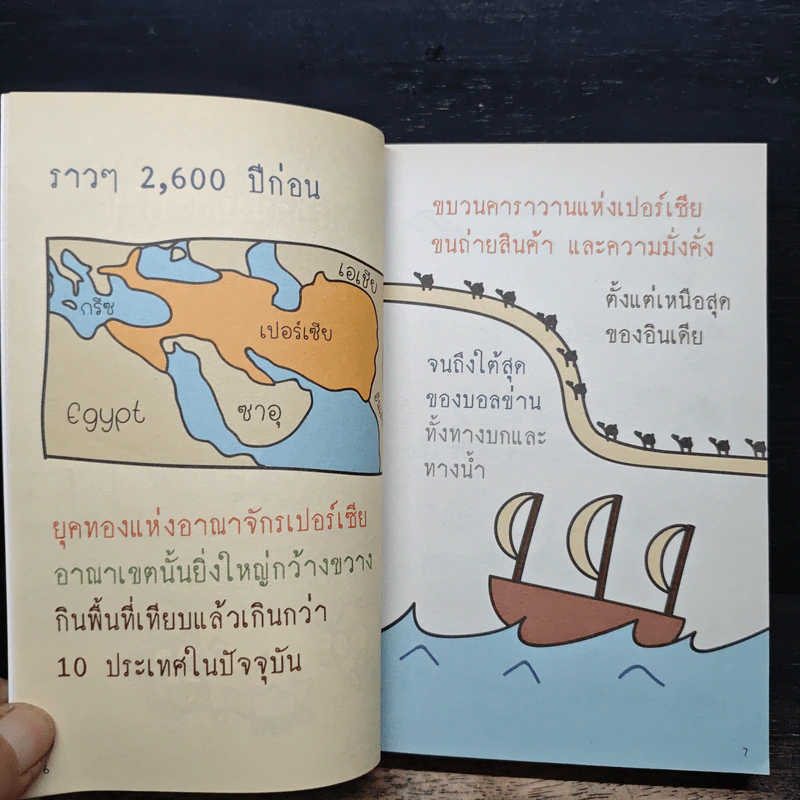 ราวๆ 2,600 ปีก่อน
เอเชีย
กรีซ
เปอร์เซีย
Egypt
ซาอุ
ยุคทองแห่งอาณาจักรเปอร์เซีย
อาณาเขตนั้นยิ่งใหญ่กว้างขวาง
กินพื้นที่เทียบแล้วเกินกว่า
10 ประเทศในปัจจุบัน
6
ขบวนคาราวานแห่งเปอร์เซีย
ขนถ่ายสินค้า และความมั่งคั่ง
ตั้งแต่เหนือสุด
ของอินเดีย
จนถึงใต้สุด
ของบอลข่าน
ทั้งทางบกและ
ทางน้ำ
7